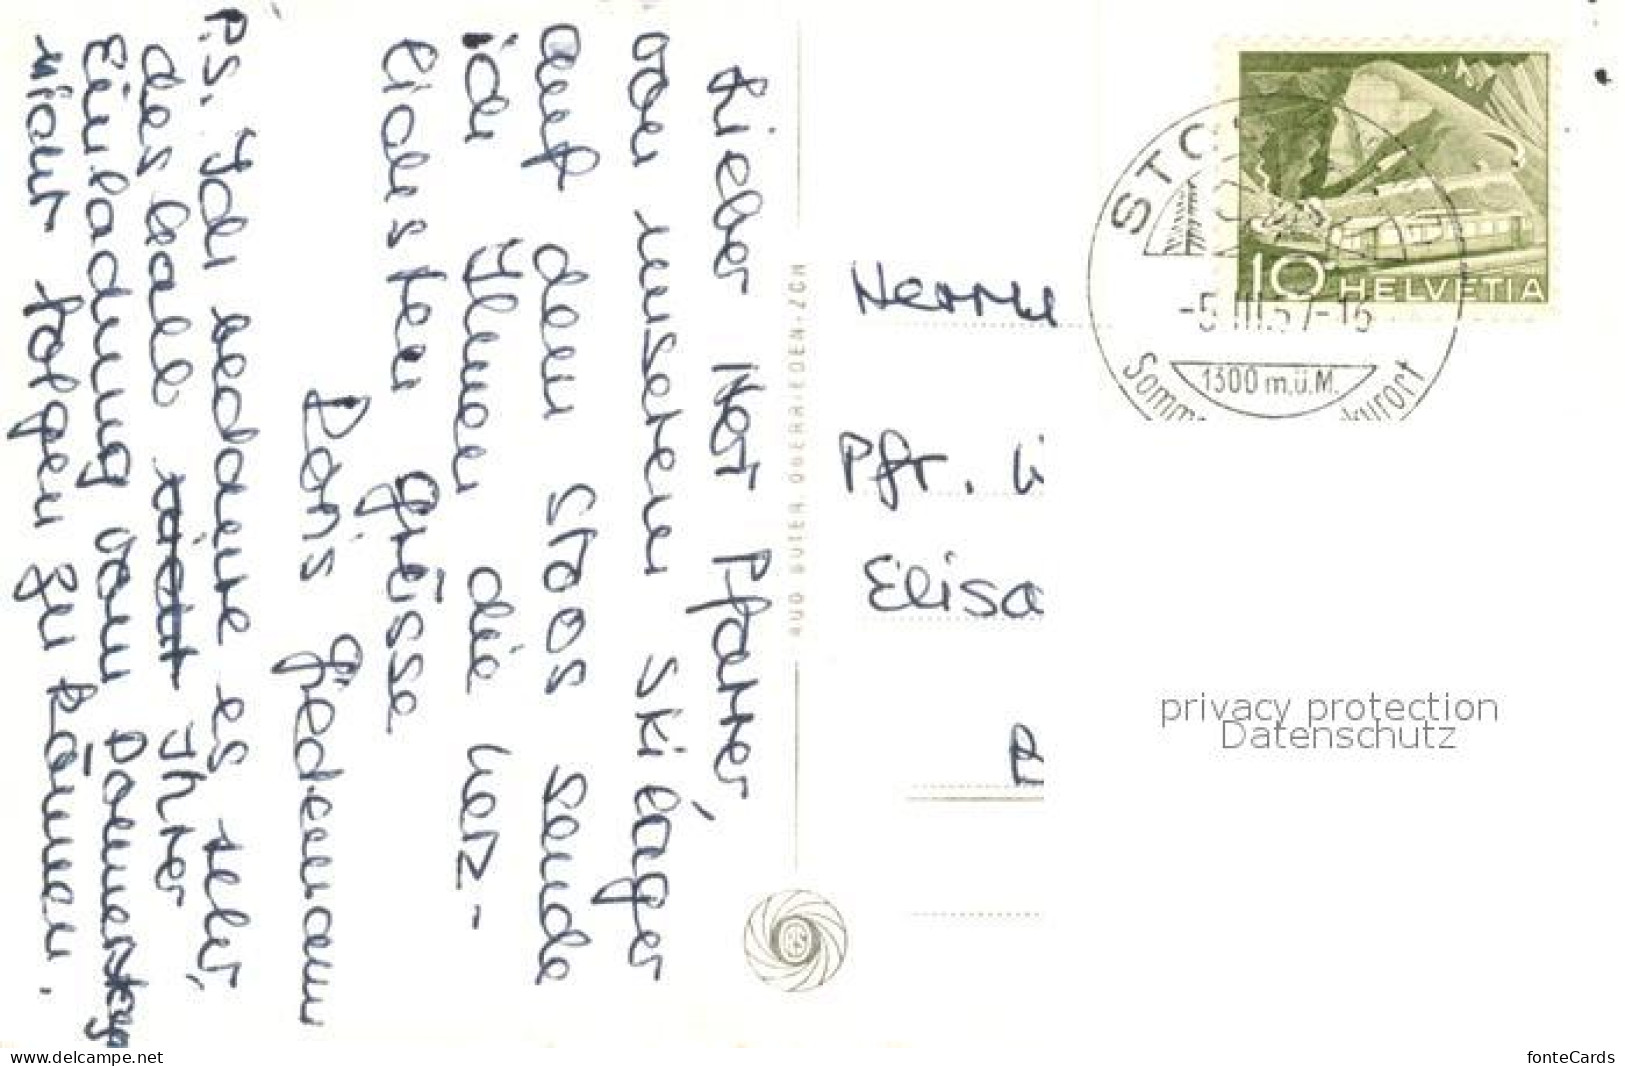 Lieber Herr Pfarrer
Von unserem Skilager
auf dem Stoos sende
ich Ihnen die herz-
lichsten Grüsse
Doris Giedemann
P.S. Ich bedaure es sehr,
deshalb nicht Ihrer
Einladung vom Donnerstag
nicht folgen zu können.
AUO SUTER, OBERRIEDEN-ZCH
STO
10 HELVETIA
-5.III.57-16
1300 m.ü.M.
Somm kurort
Herrn
Pfr.
Elisa
privacy protection
Datenschutz
www.delcampe.net
fonteCards